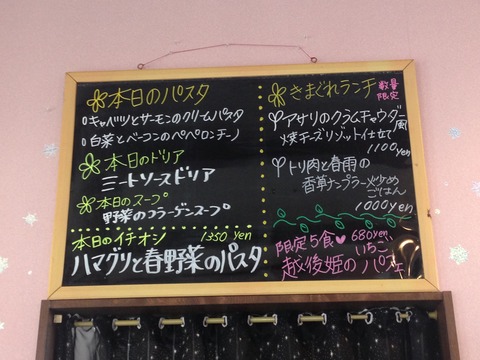 本日のパスタ
キャベツとサーモンのクリームパスタ
白菜とベーコンのペペロンチーノ
本日のドリア
ミートソースドリア
本日のスープ
野菜のコラーゲンスープ
本日のイチオシ 1350yen
ハマグリと春野菜のパスタ
きまぐれランチ 数量限定
アサリのクラムチャウダー風
焼チーズリゾット仕立て
1100yen
トリ肉と春雨の
香草ナンプラー炒め
ごはん
1000yen
限定5食♥ 680yen
いちご
越後姫のパフェ